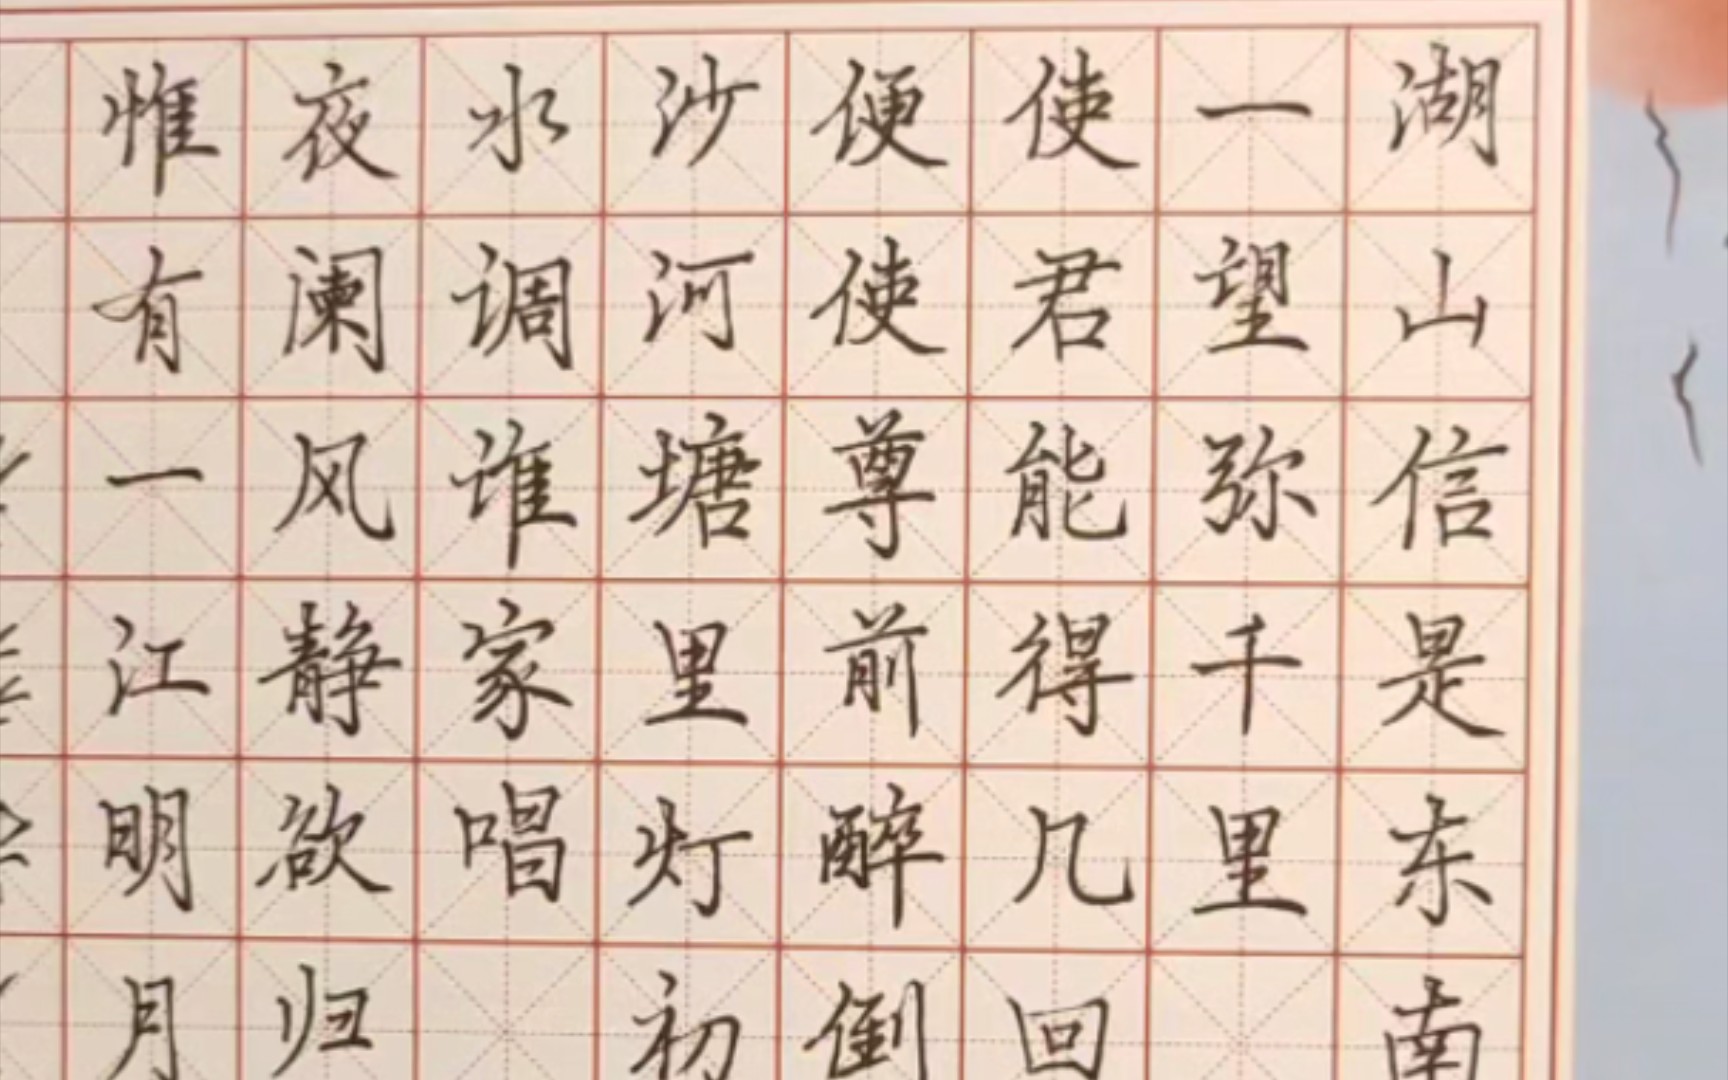 湖山信是东南
一望弥千里
使君能得几回
便使尊前醉倒
沙河塘里灯初
水调谁家唱
夜阑风静欲归
惟有一江明月